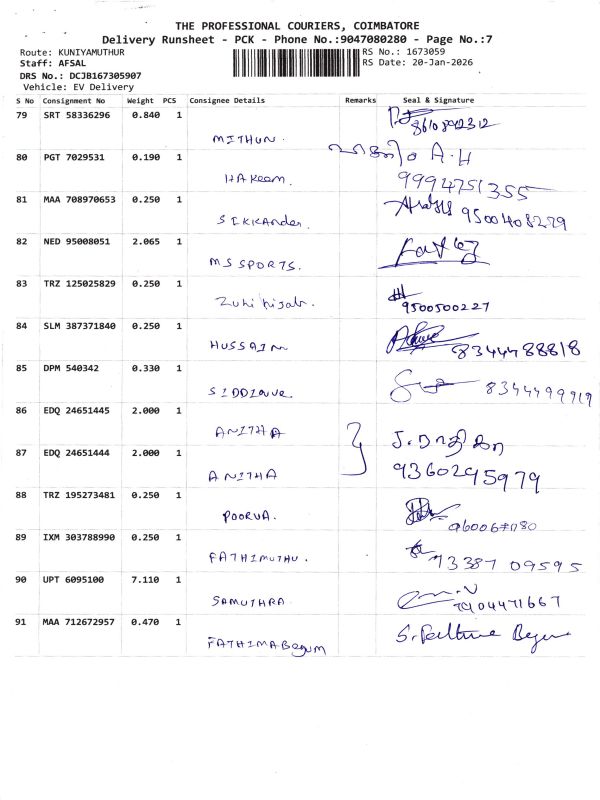 THE PROFESSIONAL COURIERS, COIMBATORE
Delivery Runsheet - PCK - Phone No.:9047080280 - Page No.:7
Route: KUNIYAMUTHUR
RS No.: 1673059
Staff: AFSAL
RS Date: 20-Jan-2026
DRS No.: DCJB167305907
Vehicle: EV Delivery
S No Consignment No Weight PCS Consignee Details Remarks Seal & Signature
79 SRT 58336296 0.840 1
MITHUN. 8610892312
80 PGT 7029531 0.190 1 A.H
HAKeem. 9994751355
81 MAA 708970653 0.250 1
SIKKANder. 9500408279
82 NED 95008051 2.065 1
MS SPORTS.
83 TRZ 125025829 0.250 1
Zuhi hijab. 9500500227
84 SLM 387371840 0.250 1
HUSSAIN 8344488818
85 DPM 540342 0.330 1
SIDDIQUE 8344499919
86 EDQ 24651445 2.000 1
ANITHA J.
87 EDQ 24651444 2.000 1
ANITHA 9360295979
88 TRZ 195273481 0.250 1
POORVA.
89 IXM 303788990 0.250 1
FATHIMUTHU. 73387 09595
90 UPT 6095100 7.110 1
SAMUTHRA.
91 MAA 712672957 0.470 1
FATHIMABegum S. Fathima Begum